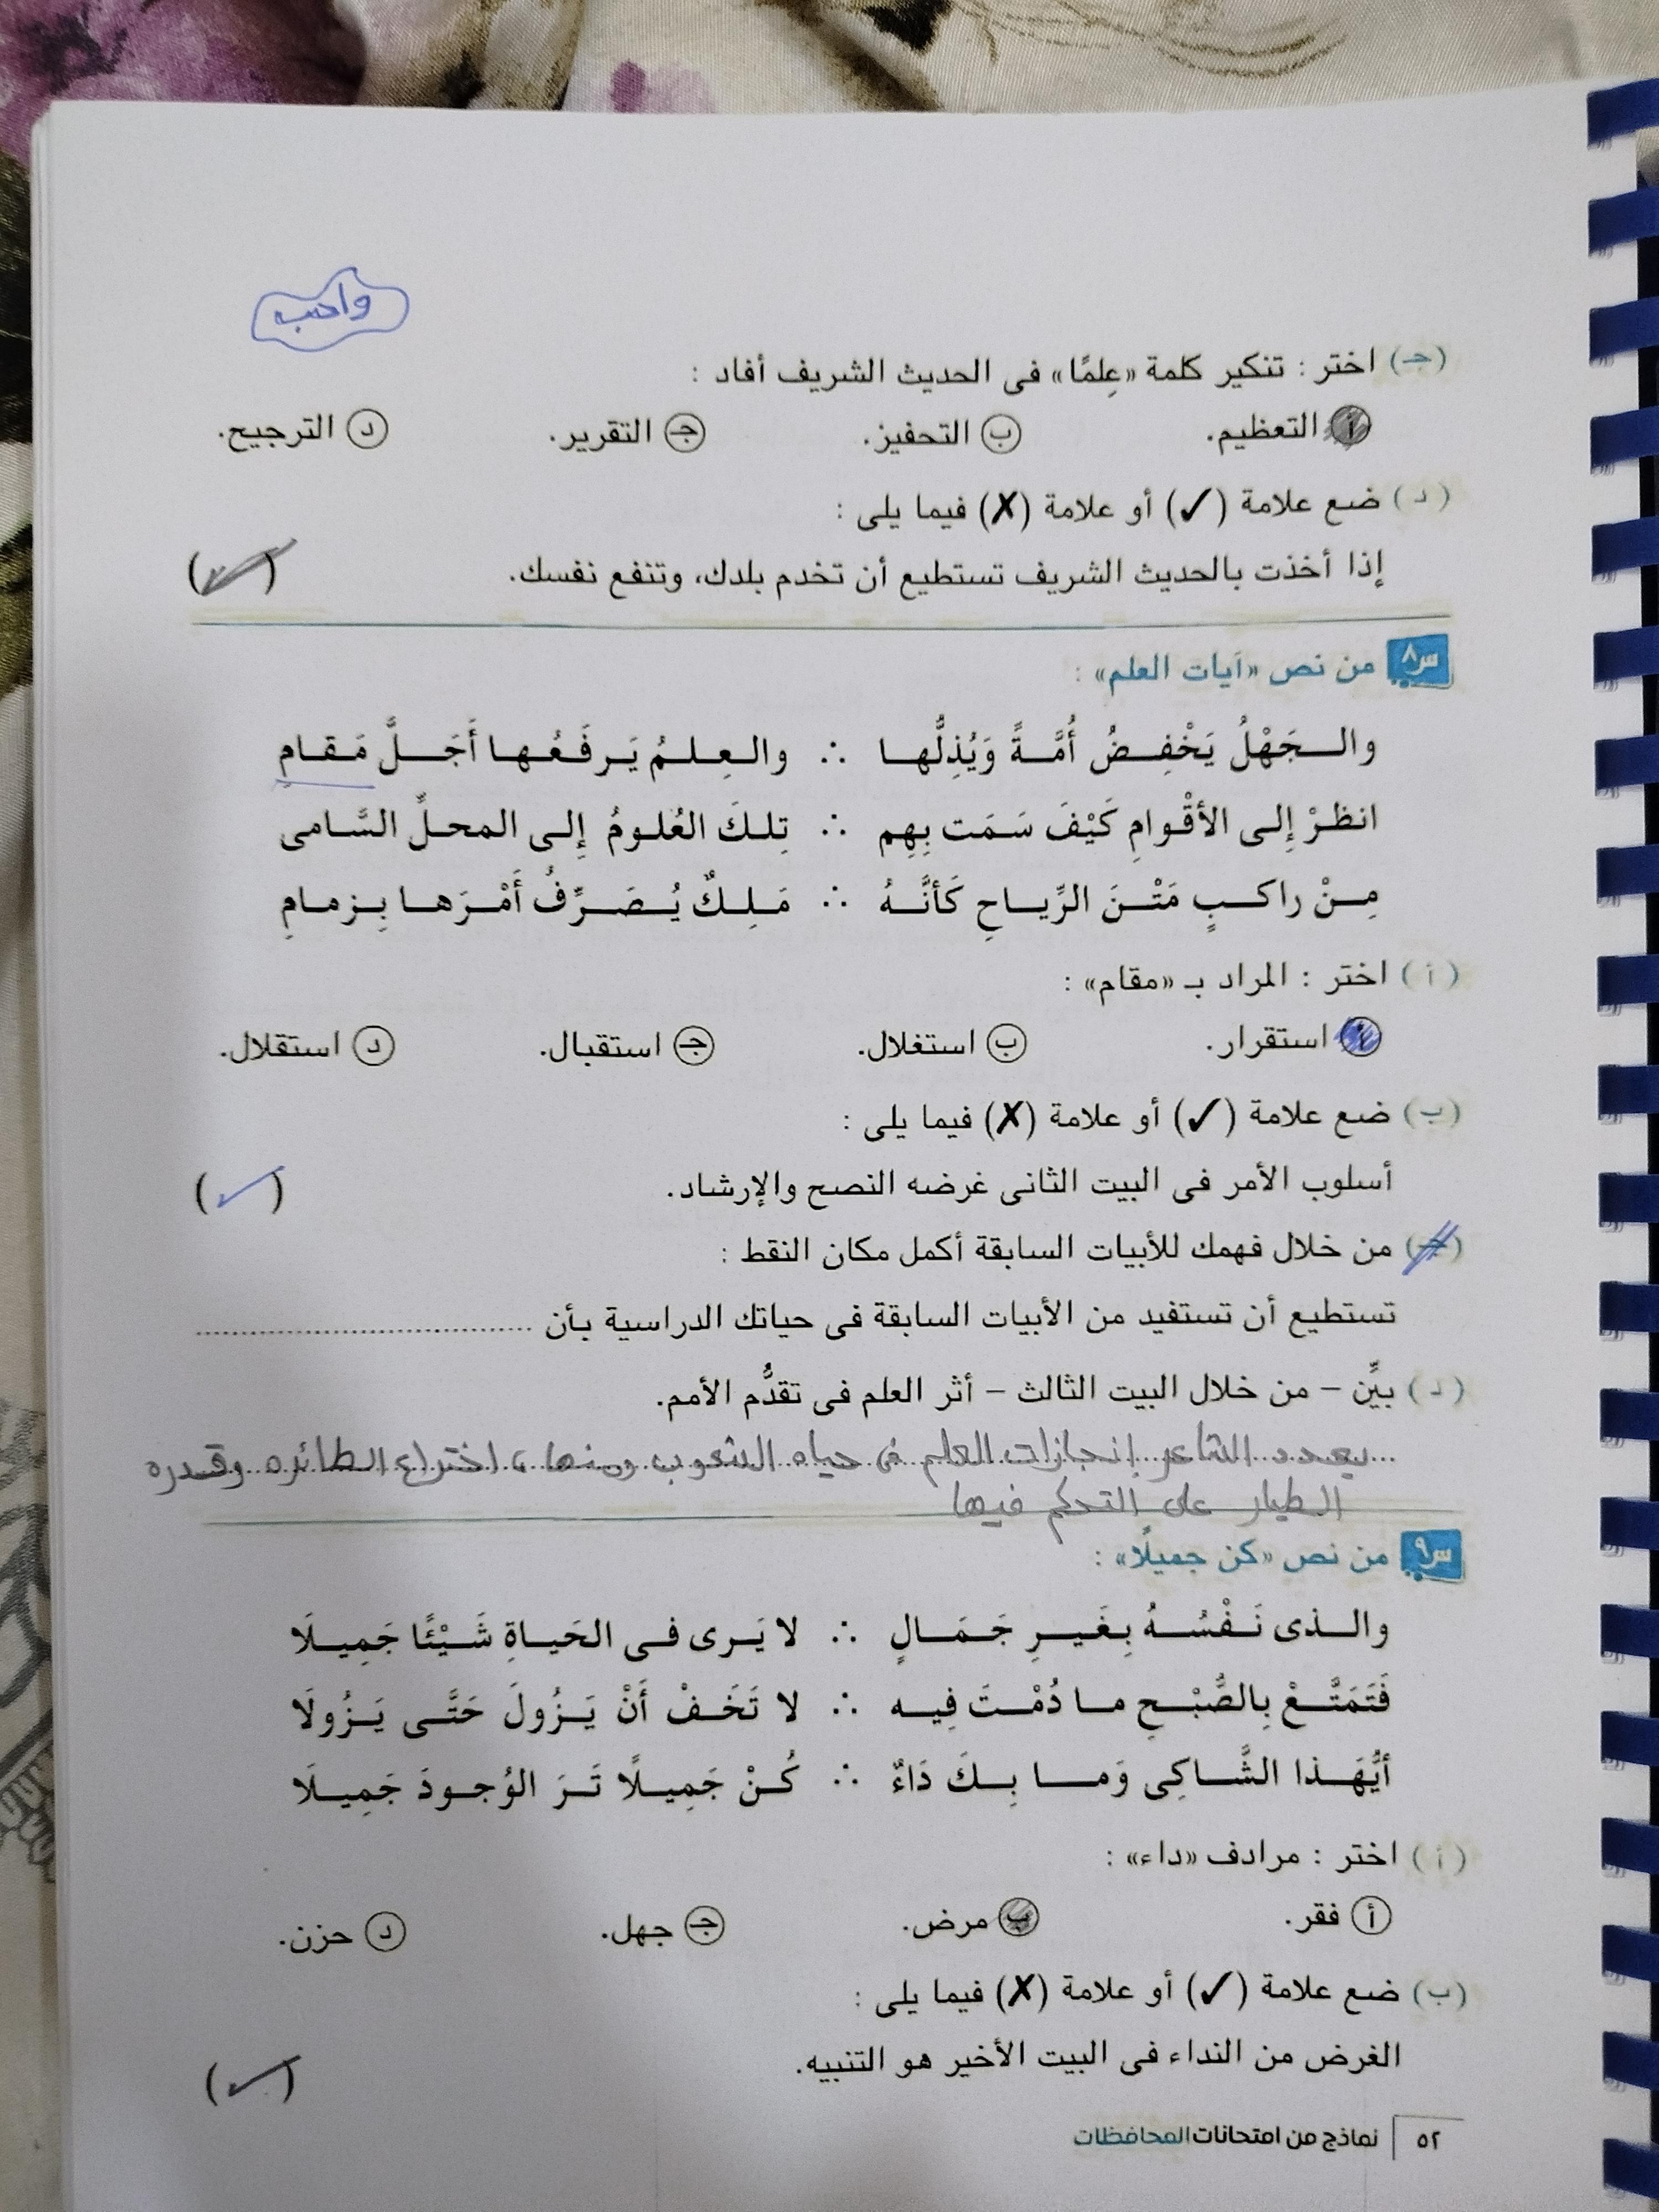 واجب
(جـ) اختر : تنكير كلمة «عِلمًا» فى الحديث الشريف أفاد :
أ التعظيم. ب التحفيز. جـ التقرير. د الترجيح.
(د) ضع علامة (✓) أو علامة (✗) فيما يلى :
إذا أخذت بالحديث الشريف تستطيع أن تخدم بلدك، وتنفع نفسك. (✓)
س٨ من نص «آيات العلم» :
والـجَهْلُ يَخْفِضُ أُمَّةً وَيُذِلُّها ∴ والعِلمُ يَرفَعُها أَجَلَّ مَقامِ
انظرْ إلى الأقْوامِ كَيْفَ سَمَت بِهِم ∴ تِلكَ العُلومُ إِلى المحلِّ السَّامى
مِنْ راكبٍ مَتْنَ الرِّياحِ كَأنَّهُ ∴ مَلِكٌ يُصَرِّفُ أَمْرَها بِزمامِ
(أ) اختر : المراد بـ «مقام» :
أ استقرار. ب استغلال. جـ استقبال. د استقلال.
(ب) ضع علامة (✓) أو علامة (✗) فيما يلى :
أسلوب الأمر فى البيت الثانى غرضه النصح والإرشاد. (✓)
(جـ) من خلال فهمك للأبيات السابقة أكمل مكان النقط :
تستطيع أن تستفيد من الأبيات السابقة فى حياتك الدراسية بأن ..............................
(د) بيِّن – من خلال البيت الثالث – أثر العلم فى تقدُّم الأمم.
يعدد الشاعر إنجازات العلم فى حياه الشعوب ومنها، اختراع الطائره وقدره
الطيار على التحكم فيها
س٩ من نص «كن جميلًا» :
والذى نَفْسُهُ بِغَيرِ جَمَالٍ ∴ لا يَرى فى الحَياةِ شَيْئًا جَمِيلَا
فَتَمَتَّعْ بِالصُّبْحِ ما دُمْتَ فِيه ∴ لا تَخَفْ أَنْ يَزُولَ حَتَّى يَزُولَا
أيُّهَذا الشَّاكِى وَما بِكَ دَاءٌ ∴ كُنْ جَمِيلًا تَرَ الوُجودَ جَمِيلَا
(أ) اختر : مرادف «داء» :
أ فقر. ب مرض. جـ جهل. د حزن.
(ب) ضع علامة (✓) أو علامة (✗) فيما يلى :
الغرض من النداء فى البيت الأخير هو التنبيه. (✓)
٥٢ نماذج من امتحانات المحافظات